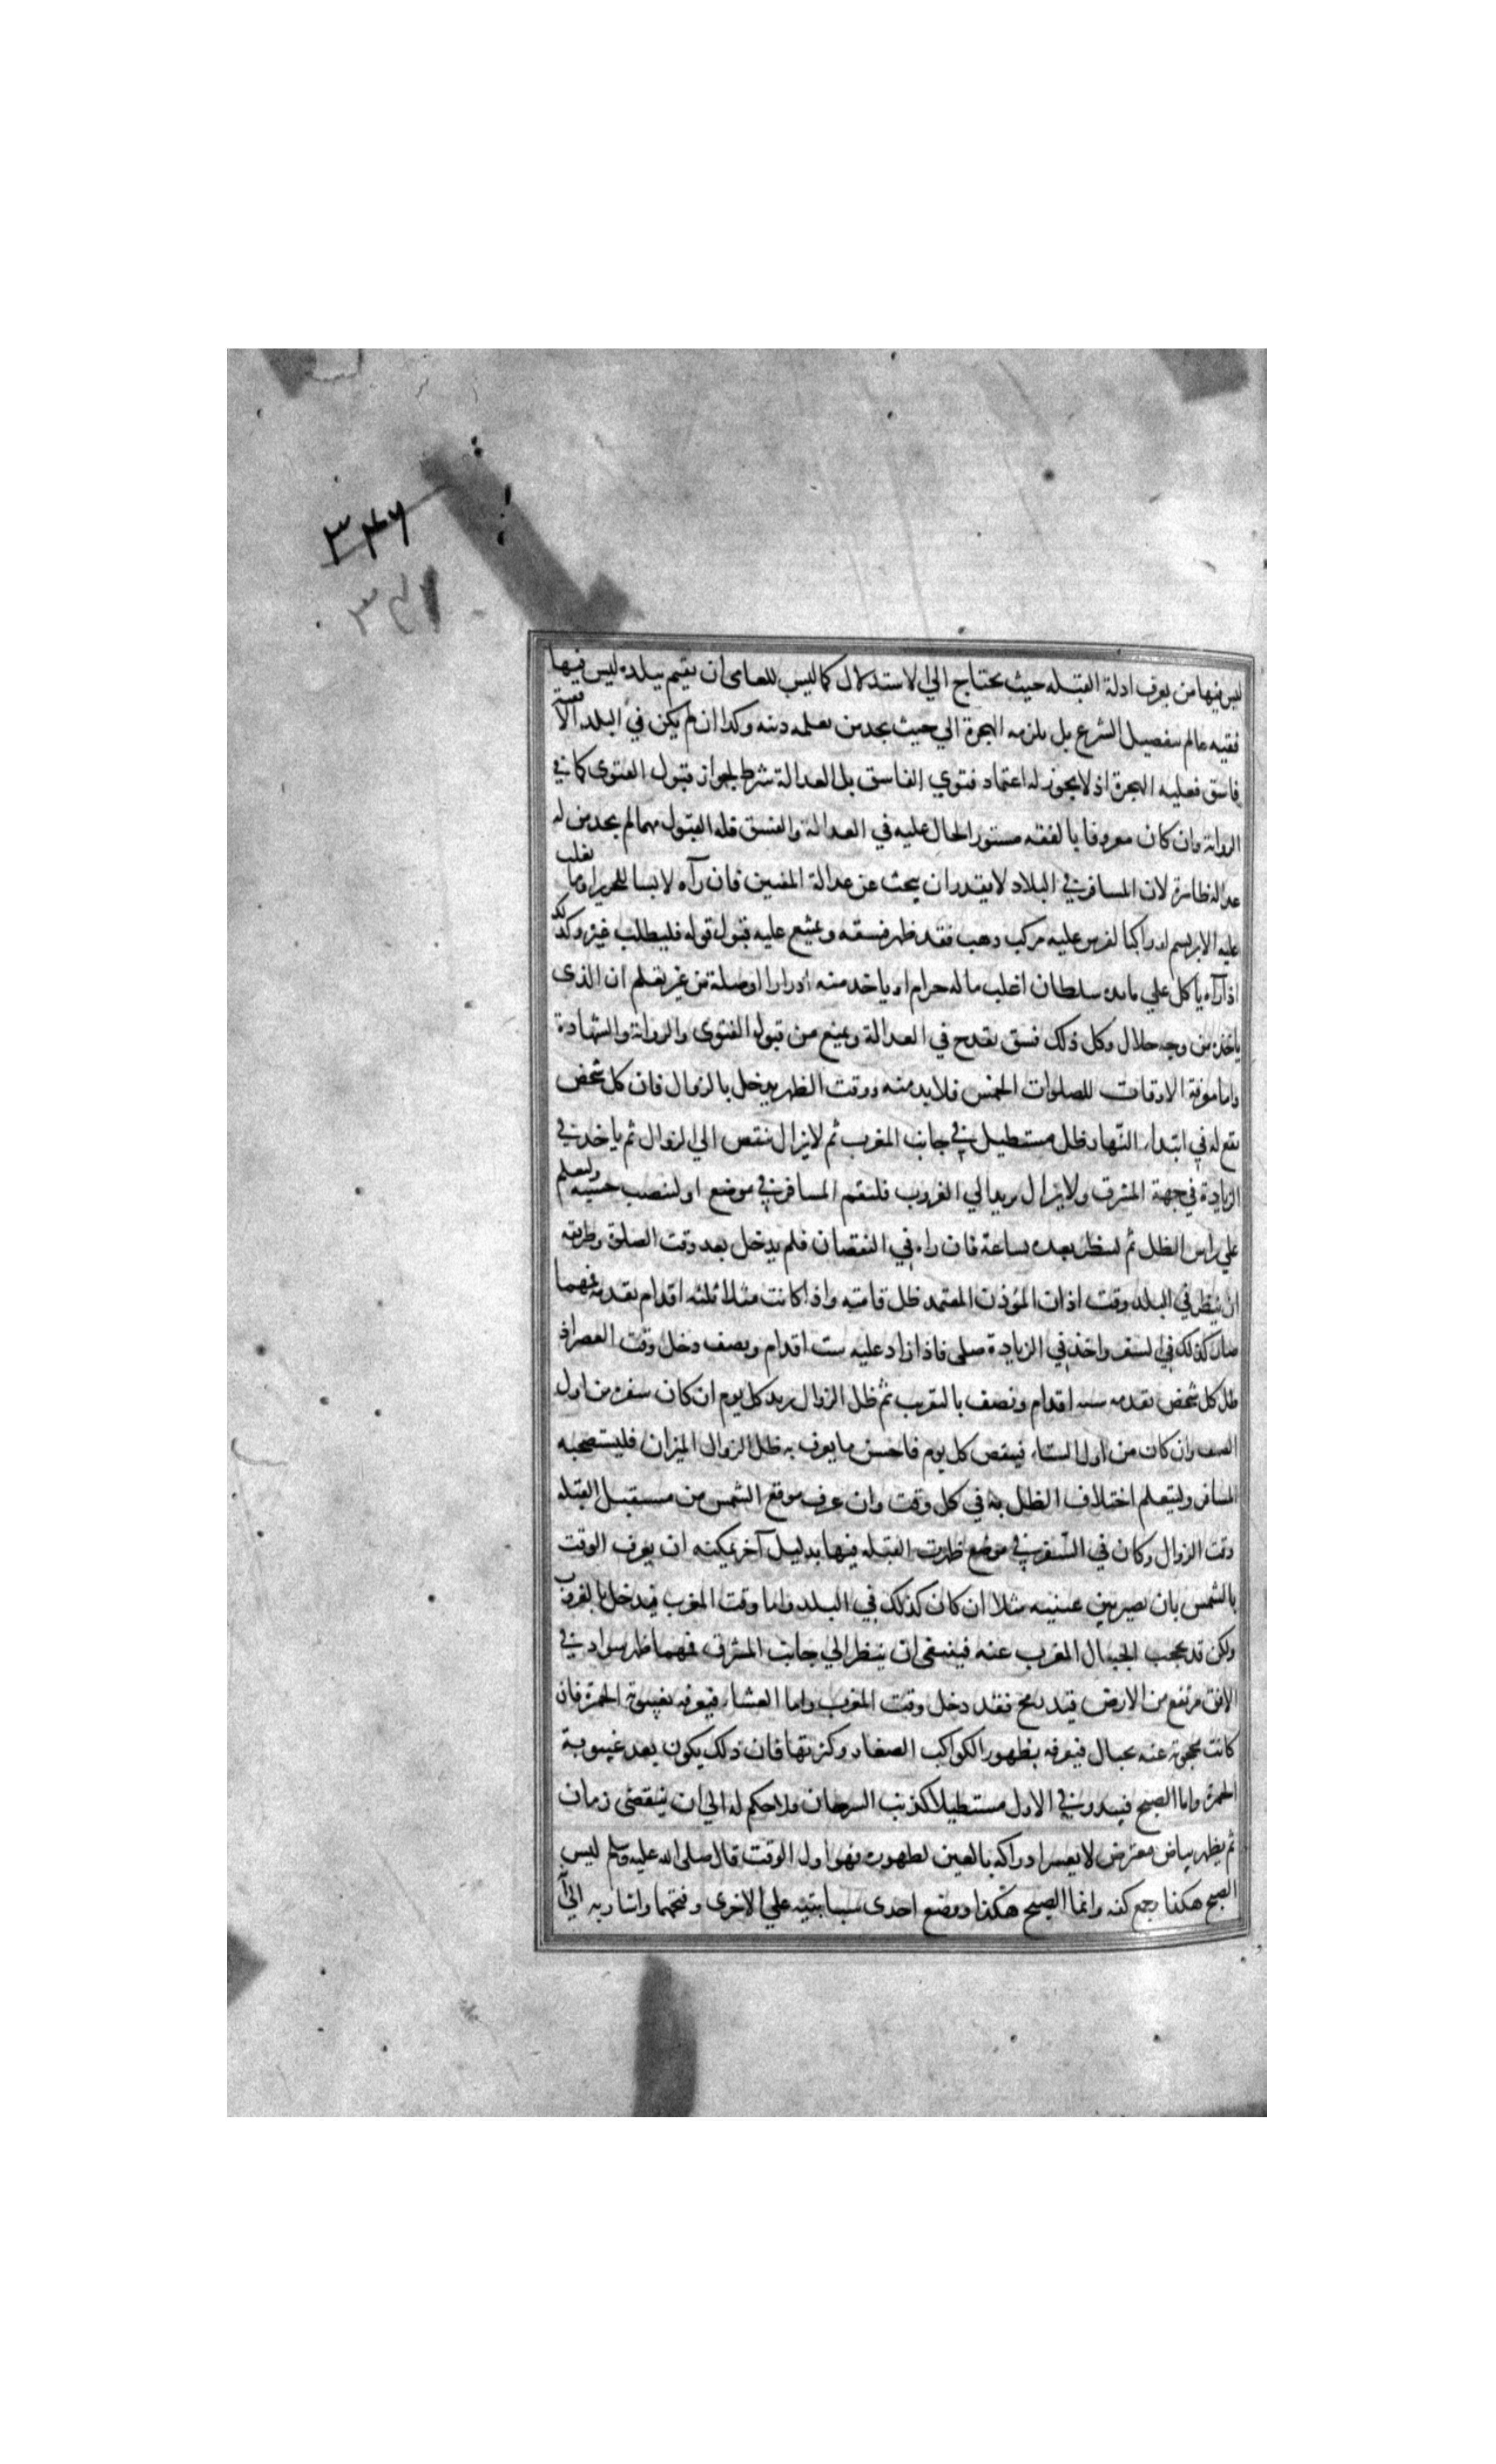 ۳۴۶
۳۴۱
ليس فيها من يعرف ادلة القبلة حيث يحتاج الي الاستدلال كما ليس للعامى ان يقيم ببلدة ليس فيها
فقيه عالم بتفصيل الشرع بل يلزمه الهجرة الي حيث يجد من يعلمه دينه وكذا ان لم يكن في البلد الا فقيه
فاسق فعليه الهجرة اذ لا يجوز له اعتماد فتوي الفاسق بل العدالة شرط لجواز قبول الفتوى كما في
الرواية وان كان معروفا بالفقه مستور الحال عليه في العدالة والفسق فله القبول مهما لم يجد من له
عدالة ظاهرة لان المسافر في البلاد لا يقدر ان يبحث عن عدالة المفتين فان رآه لابسا للحرير او ما يغلب
عليه الابريسم او راكبا لفرس عليه مركب ذهب فقد ظهر فسقه ويمتنع عليه قبول قوله فليطلب غيره وكذلك
اذا رآه ياكل علي مايدة سلطان اغلب ماله حرام او ياخذ منه ادرارا او صلة من غير يعلم ان الذى
ياخذه من وجه حلال وكل ذلك فسق يقدح في العدالة ويمنع من قبول الفتوى والرواية والشهادة
واما معرفة الاوقات للصلوات الخمس فلا بد منه ووقت الظهر يدخل بالزوال فان كل شخص
يقع له في ابتداء النهار ظل مستطيل في جانب المغرب ثم لا يزال ينقص الي الزوال ثم ياخذ في
الزيادة في جهة المشرق ولا يزال يزيد الي الغروب فليقم المسافر في موضع او لينصب خشبة وليعلم
علي راس الظل ثم لينظر بعده ساعة فان راه في النقصان فلم يدخل بعد وقت الصلوة وطريقه
ان ينظر في البلد وقت اذان المؤذن المعتمد ظل قامته واذا كانت مثلا ثلثه اقدام بقدمه فمهما
صار كذلك في السفر واخذ في الزيادة صلى فاذا زاد عليه ست اقدام ونصف دخل وقت العصر اذ
ظل كل شخص بقدمه سته اقدام ونصف بالتقريب ثم ظل الزوال يزيد كل يوم ان كان سفره من اول
الصيف وان كان من اول الشتاء فينقص كل يوم فاحسن ما يعرف به ظل الزوال الميزان فليستصحبه
المسافر وليتعلم اختلاف الظل به في كل وقت وان عرف موقع الشمس من مستقبل القبلة
وقت الزوال وكان في السفر في موضع ظهرت القبلة فيها بدليل آخر يمكنه ان يعرف الوقت
بالشمس بان يصير بين عينيه مثلا ان كان كذلك في البلد واما وقت المغرب فيدخل بالغروب
ولكن قد يحجب الجبال المغرب عنه فينبغى ان ينظر الي جانب المشرق فمهما ظهر سواد في
الافق مرتفع من الارض قيد رمح فقد دخل وقت المغرب واما العشاء فيعرف بغيبوبة الحمرة فان
كانت محجوبة عنه بجبال فيعرفه بظهور الكواكب الصغار وكثرتها فان ذلك يكون بعد غيبوبة
الحمرة واما الصبح فيبدو في الاول مستطيلا كذنب السرحان ولا حكم له الي ان ينقضى زمان
ثم يظهر بياض معترض لا يعسر ادراكه بالعين لظهوره فهو اول الوقت قال صلى الله عليه وسلم ليس
الصبح هكذا وجمع كفه وانما الصبح هكذا ووضع احدى سبابتيه علي الاخرى وفتحهما واشار به الي